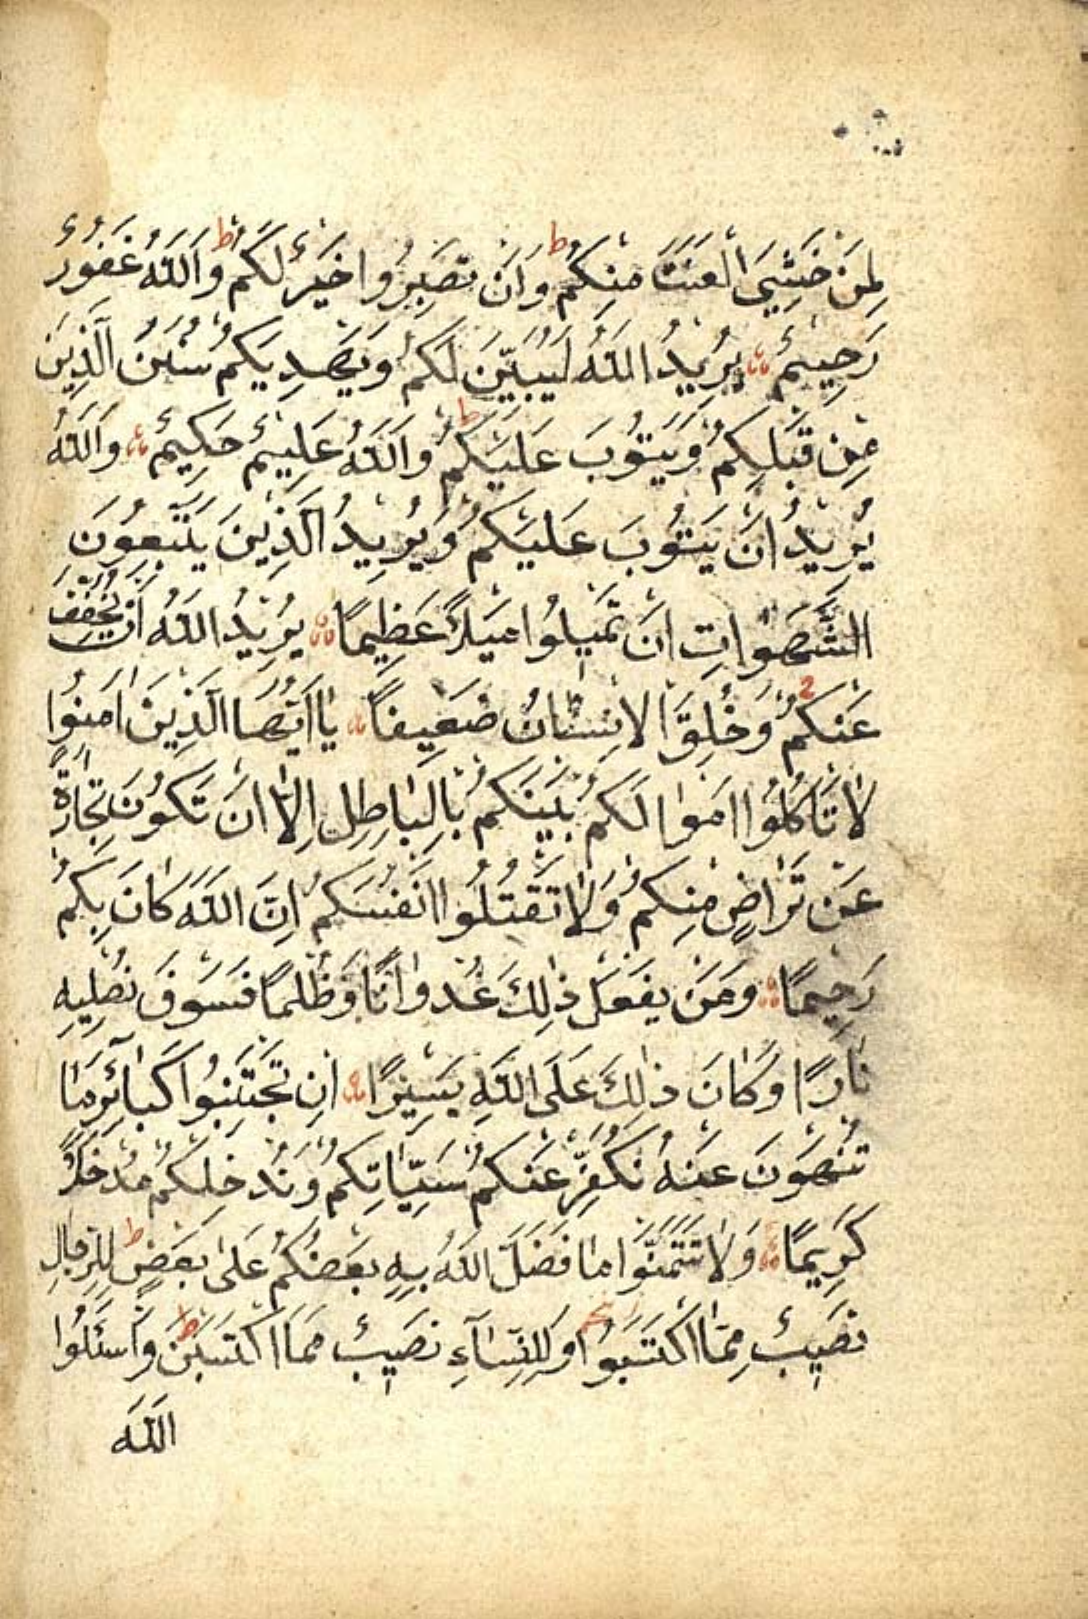 لِمَنْ خَشِيَ الْعَنَتَ مِنْكُمْ ط وَاَنْ تَصْبِرُوا خَيْرٌ لَكُمْ ط وَاَللّٰهُ غَفُورٌ
رَحِيمٌ يُرِيدُ اللّٰهُ لِيُبَيِّنَ لَكُمْ وَيَهْدِيَكُمْ سُنَنَ الَّذِينَ
مِنْ قَبْلِكُمْ وَيَتُوبَ عَلَيْكُمْ ط وَاَللّٰهُ عَلِيمٌ حَكِيمٌ وَاَللّٰهُ
يُرِيدُ اَنْ يَتُوبَ عَلَيْكُمْ وَيُرِيدُ الَّذِينَ يَتَّبِعُونَ
الشَّهَوَاتِ اَنْ تَمِيلُوا مَيْلًا عَظِيمًا يُرِيدُ اللّٰهُ اَنْ يُخَفِّفَ
عَنْكُمْ وَخُلِقَ الْاِنْسَانُ ضَعِيفًا يَا اَيُّهَا الَّذِينَ اٰمَنُوا
لَا تَاْكُلُوا اَمْوَالَكُمْ بَيْنَكُمْ بِالْبَاطِلِ اِلَّا اَنْ تَكُونَ تِجَارَةً
عَنْ تَرَاضٍ مِنْكُمْ وَلَا تَقْتُلُوا اَنْفُسَكُمْ اِنَّ اللّٰهَ كَانَ بِكُمْ
رَحِيمًا وَمَنْ يَفْعَلْ ذٰلِكَ عُدْوَانًا وَظُلْمًا فَسَوْفَ نُصْلِيهِ
نَارًا وَكَانَ ذٰلِكَ عَلَى اللّٰهِ يَسِيرًا اِنْ تَجْتَنِبُوا كَبَائِرَ مَا
تُنْهَوْنَ عَنْهُ نُكَفِّرْ عَنْكُمْ سَيِّاٰتِكُمْ وَنُدْخِلْكُمْ مُدْخَلًا
كَرِيمًا وَلَا تَتَمَنَّوْا مَا فَضَّلَ اللّٰهُ بِهِ بَعْضَكُمْ عَلٰى بَعْضٍ ط لِلرِّجَالِ
نَصِيبٌ مِمَّا اكْتَسَبُوا وَلِلنِّسَآءِ نَصِيبٌ مِمَّا اكْتَسَبْنَ ط وَاسْئَلُوا
اللّٰهَ